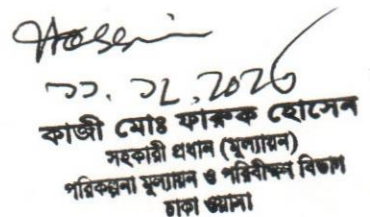 Hossain
কাজী মোঃ ফারুক হোসেন
সহকারী প্রধান (মূল্যায়ন)
পরিকল্পনা মূল্যায়ন ও পরিবীক্ষন বিভাগ
ঢাকা ওয়াসা